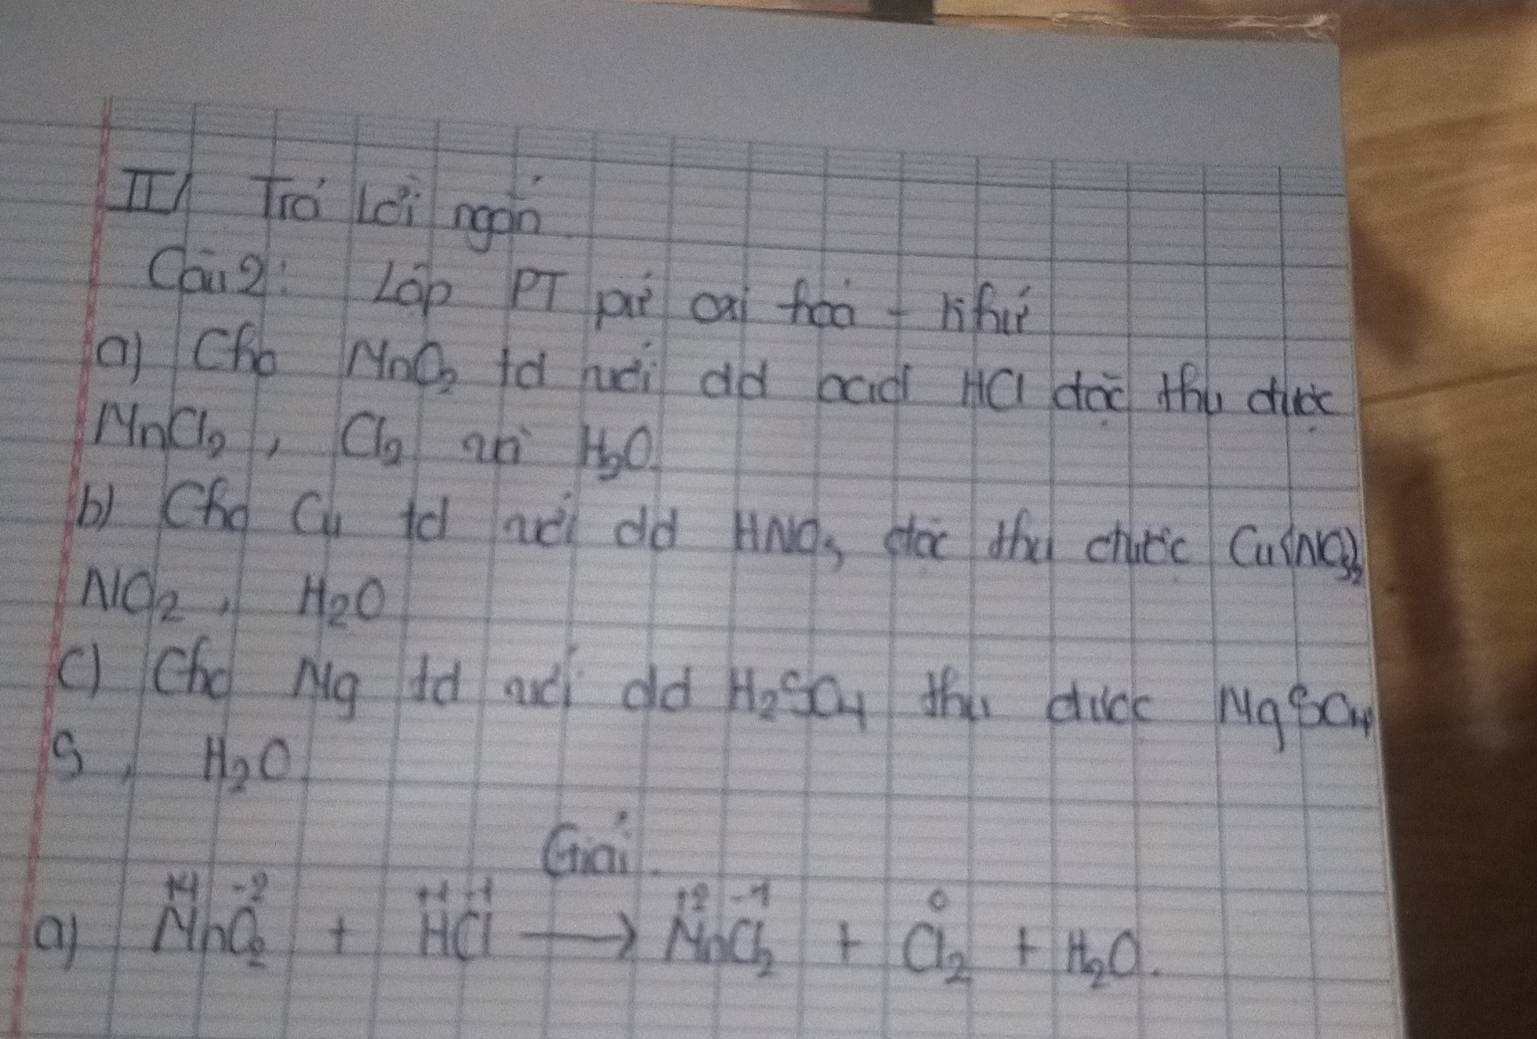 II/ Trả lời ngắn
Câu 2: Lập PT pứ oxi hoá - khử
a) Cho MnO₂ td với dd acid HCl đặc thu được
MnCl₂, Cl₂ và H₂O
b) Cho Cu td với dd HNO₃ đặc thu được Cu(NO₃)₂
NO₂, H₂O
c) Cho Mg td với dd H₂SO₄ thu được MgSO₄,
S, H₂O
Giải
+4 -2 +1 -1 +2 -1 0
a) MnO₂ + HCl → MnCl₂ + Cl₂ + H₂O.